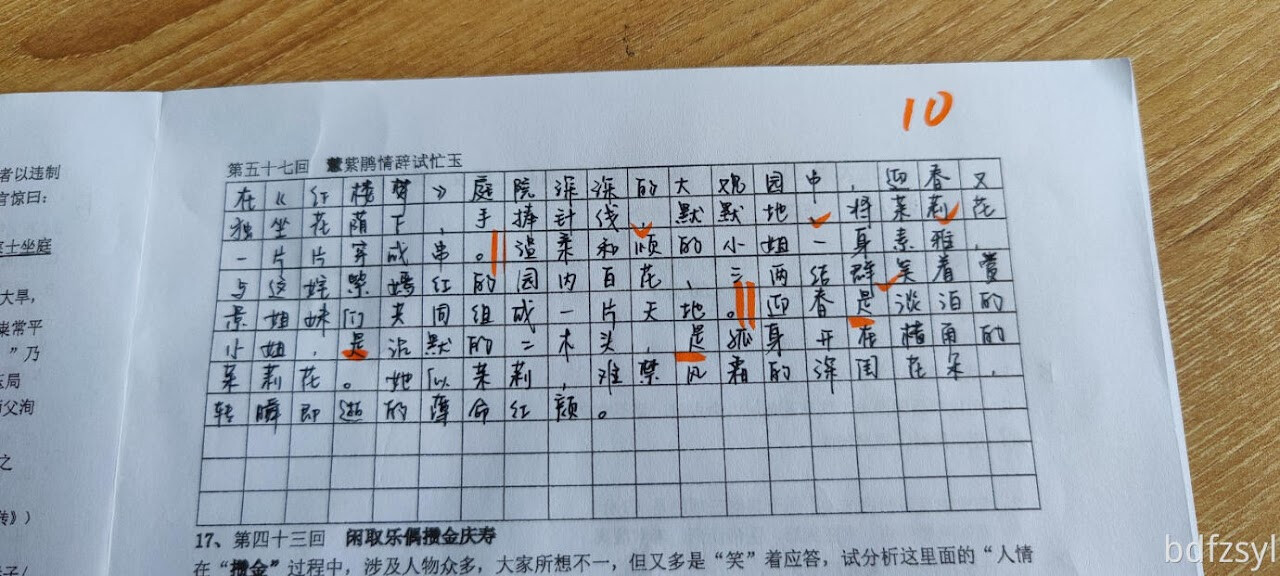 10
者以违制
官惊曰:
士坐庭
大旱,
常平
”乃
局
父洵
之
传》)
第五十七回 慧紫鹃情辞试忙玉
在《红楼梦》庭院深深的大观园中,迎春又
独坐花荫下,手捧针线,默默地,将茉莉花
一片片穿成串。温柔和顺的小姐一身素雅,
与这姹紫嫣红的园内百花、三两结群笑着赏
景姐妹们共同组成一片天地。迎春是淡泊的
小姐,是沾默的二木头,是孤身开在墙角的
茉莉花。她似茉莉,难禁风霜的深闺花朵,
转瞬即逝的薄命红颜。
17、第四十三回 闲取乐偶攒金庆寿
在“攒金”过程中,涉及人物众多,大家所想不一,但又多是“笑”着应答,试分析这里面的“人情
bdfzsyl